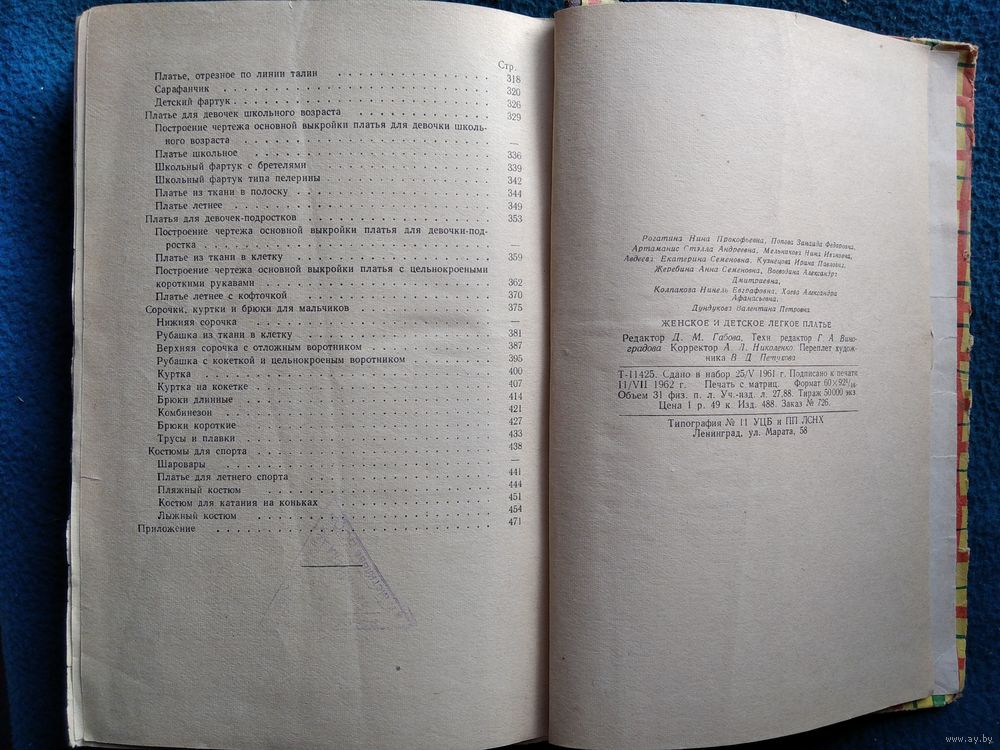 Стр.
Платье, отрезное по линии талии 318
Сарафанчик 320
Детский фартук 326
Платье для девочек школьного возраста 329
Построение чертежа основной выкройки платья для девочки школь-
ного возраста —
Платье школьное 336
Школьный фартук с бретелями 339
Школьный фартук типа пелерины 342
Платье из ткани в полоску 344
Платье летнее 349
Платья для девочек-подростков 353
Построение чертежа основной выкройки платья для девочки-под-
ростка —
Платье из ткани в клетку 359
Построение чертежа основной выкройки платья с цельнокроеными
короткими рукавами 362
Платье летнее с кофточкой 370
Сорочки, куртки и брюки для мальчиков 375
Нижняя сорочка —
Рубашка из ткани в клетку 381
Верхняя сорочка с отложным воротником 387
Рубашка с кокеткой и цельнокроеным воротником 395
Куртка 400
Куртка на кокетке 407
Брюки длинные 414
Комбинезон 421
Брюки короткие 427
Трусы и плавки 433
Костюмы для спорта 438
Шаровары —
Платье для летнего спорта 441
Пляжный костюм 444
Костюм для катания на коньках 451
Лыжный костюм 454
Приложение 471
Рогатина Нина Прокофьевна, Попова Зинаида Федоровна,
Артаманис Стэлла Андреевна, Мельникова Нина Ивановна,
Авдеева Екатерина Семеновна, Кузнецова Ирина Павловна,
Жеребина Анна Семеновна, Воеводина Александра
Дмитриевна,
Колпакова Нинель Евграфовна, Хоева Александра
Афанасьевна,
Дундукова Валентина Петровна
ЖЕНСКОЕ И ДЕТСКОЕ ЛЕГКОЕ ПЛАТЬЕ
Редактор Д. М. Габова, Техн. редактор Г. А. Вино-
градова Корректор А. Л. Николенко. Переплет худож-
ника В. Д. Петухова
Т-11425. Сдано в набор 25/V 1961 г. Подписано к печати
11/VII 1962 г. Печать с матриц. Формат 60×92 1/16.
Объем 31 физ. п. л. Уч.-изд. л. 27.88. Тираж 50000 экз.
Цена 1 р. 49 к Изд. 488. Заказ № 726.
Типография № 11 УЦБ и ПП ЛСНХ
Ленинград, ул. Марата, 58
www.ay.by